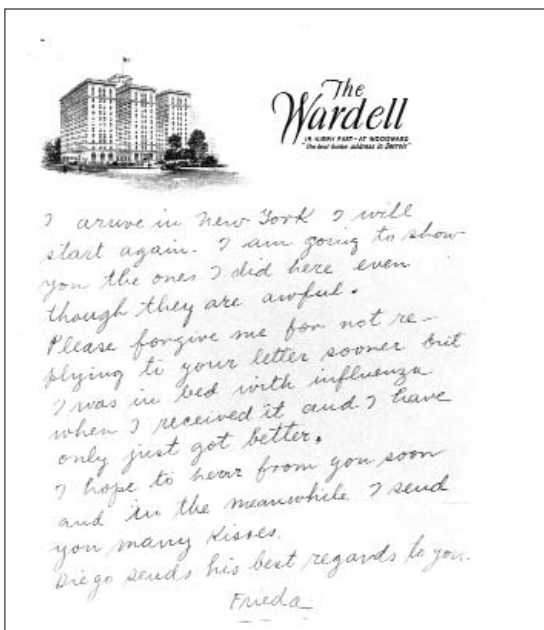 The
Wardell
15 KIRBY EAST - AT WOODWARD
"the best home address in Detroit"
I arrive in New York I will
start again. I am going to show
you the ones I did here even
though they are awful.
Please forgive me for not re-
plying to your letter sooner but
I was in bed with influenza
when I received it and I have
only just got better.
I hope to hear from you soon
and in the meanwhile I send
you many kisses.
Diego sends his best regards to you.
Frieda